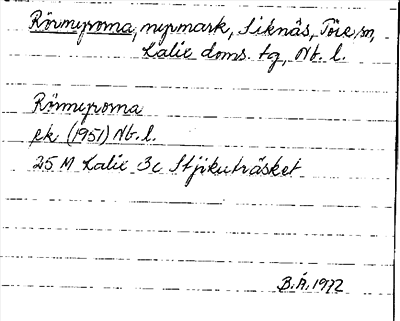 Rörmyrorna, myrmark, Siknäs, Töre sn,
Kalix doms. tg, Nb. l.
Rörmyrorna
ek (1951) Nb. l.
25 M Kalix 3c Stjikuträsket
B.Å. 1972